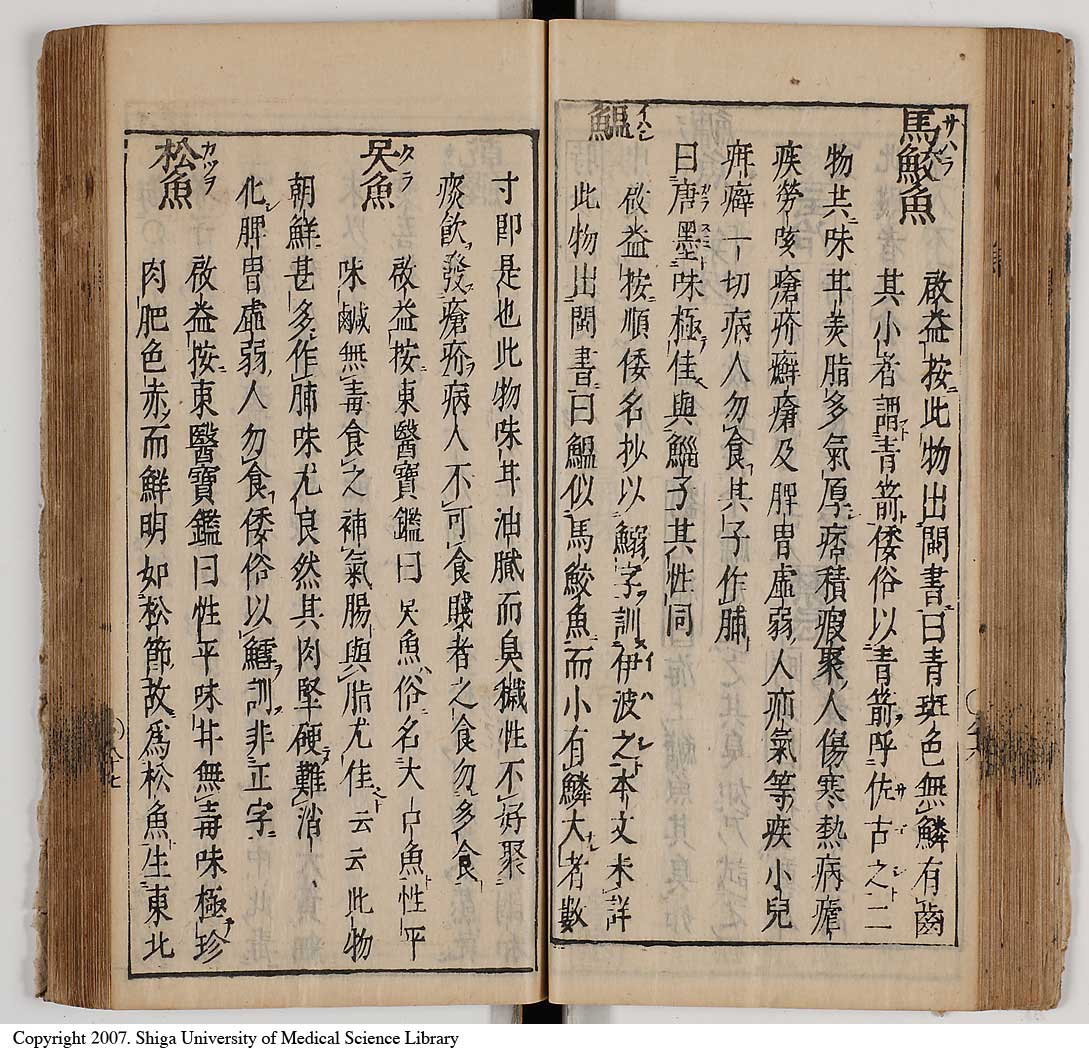 馬鮫魚 サハラ
啟益按此物出閩書曰青斑色無鱗有齒
其小者謂青箭倭俗以青箭呼佐古之二
物共味甘美脂多氣厚痞積瘕聚人傷寒熱病瘧
疾勞咳瘡疥癬瘡及脾胃虛弱人疝氣等疾小兒
疳癖一切病人勿食其子作脯
曰唐墨味極佳與鯔子其性同
鰛 イハシ
啟益按順倭名抄以鰯字訓伊波之本文未詳
此物出閩書曰鰛似馬鮫魚而小有鱗大者數
寸即是也此物味甘油膩而臭穢性不好聚
痰飲發瘡疥病人不可食賤者之食勿多食
㕦魚 タラ
啟益按東醫寶鑑曰㕦魚俗名大口魚性平
味鹹無毒食之補氣腸與脂尤佳云云此物
朝鮮甚多作脯味尤良然其肉堅硬難消
化脾胃虛弱人勿食倭俗以鱈訓非正字
松魚 カツヲ
啟益按東醫寶鑑曰性平味甘無毒味極珍
肉肥色赤而鮮明如松節故爲松魚生東北
八七
Copyright 2007. Shiga University of Medical Science Library